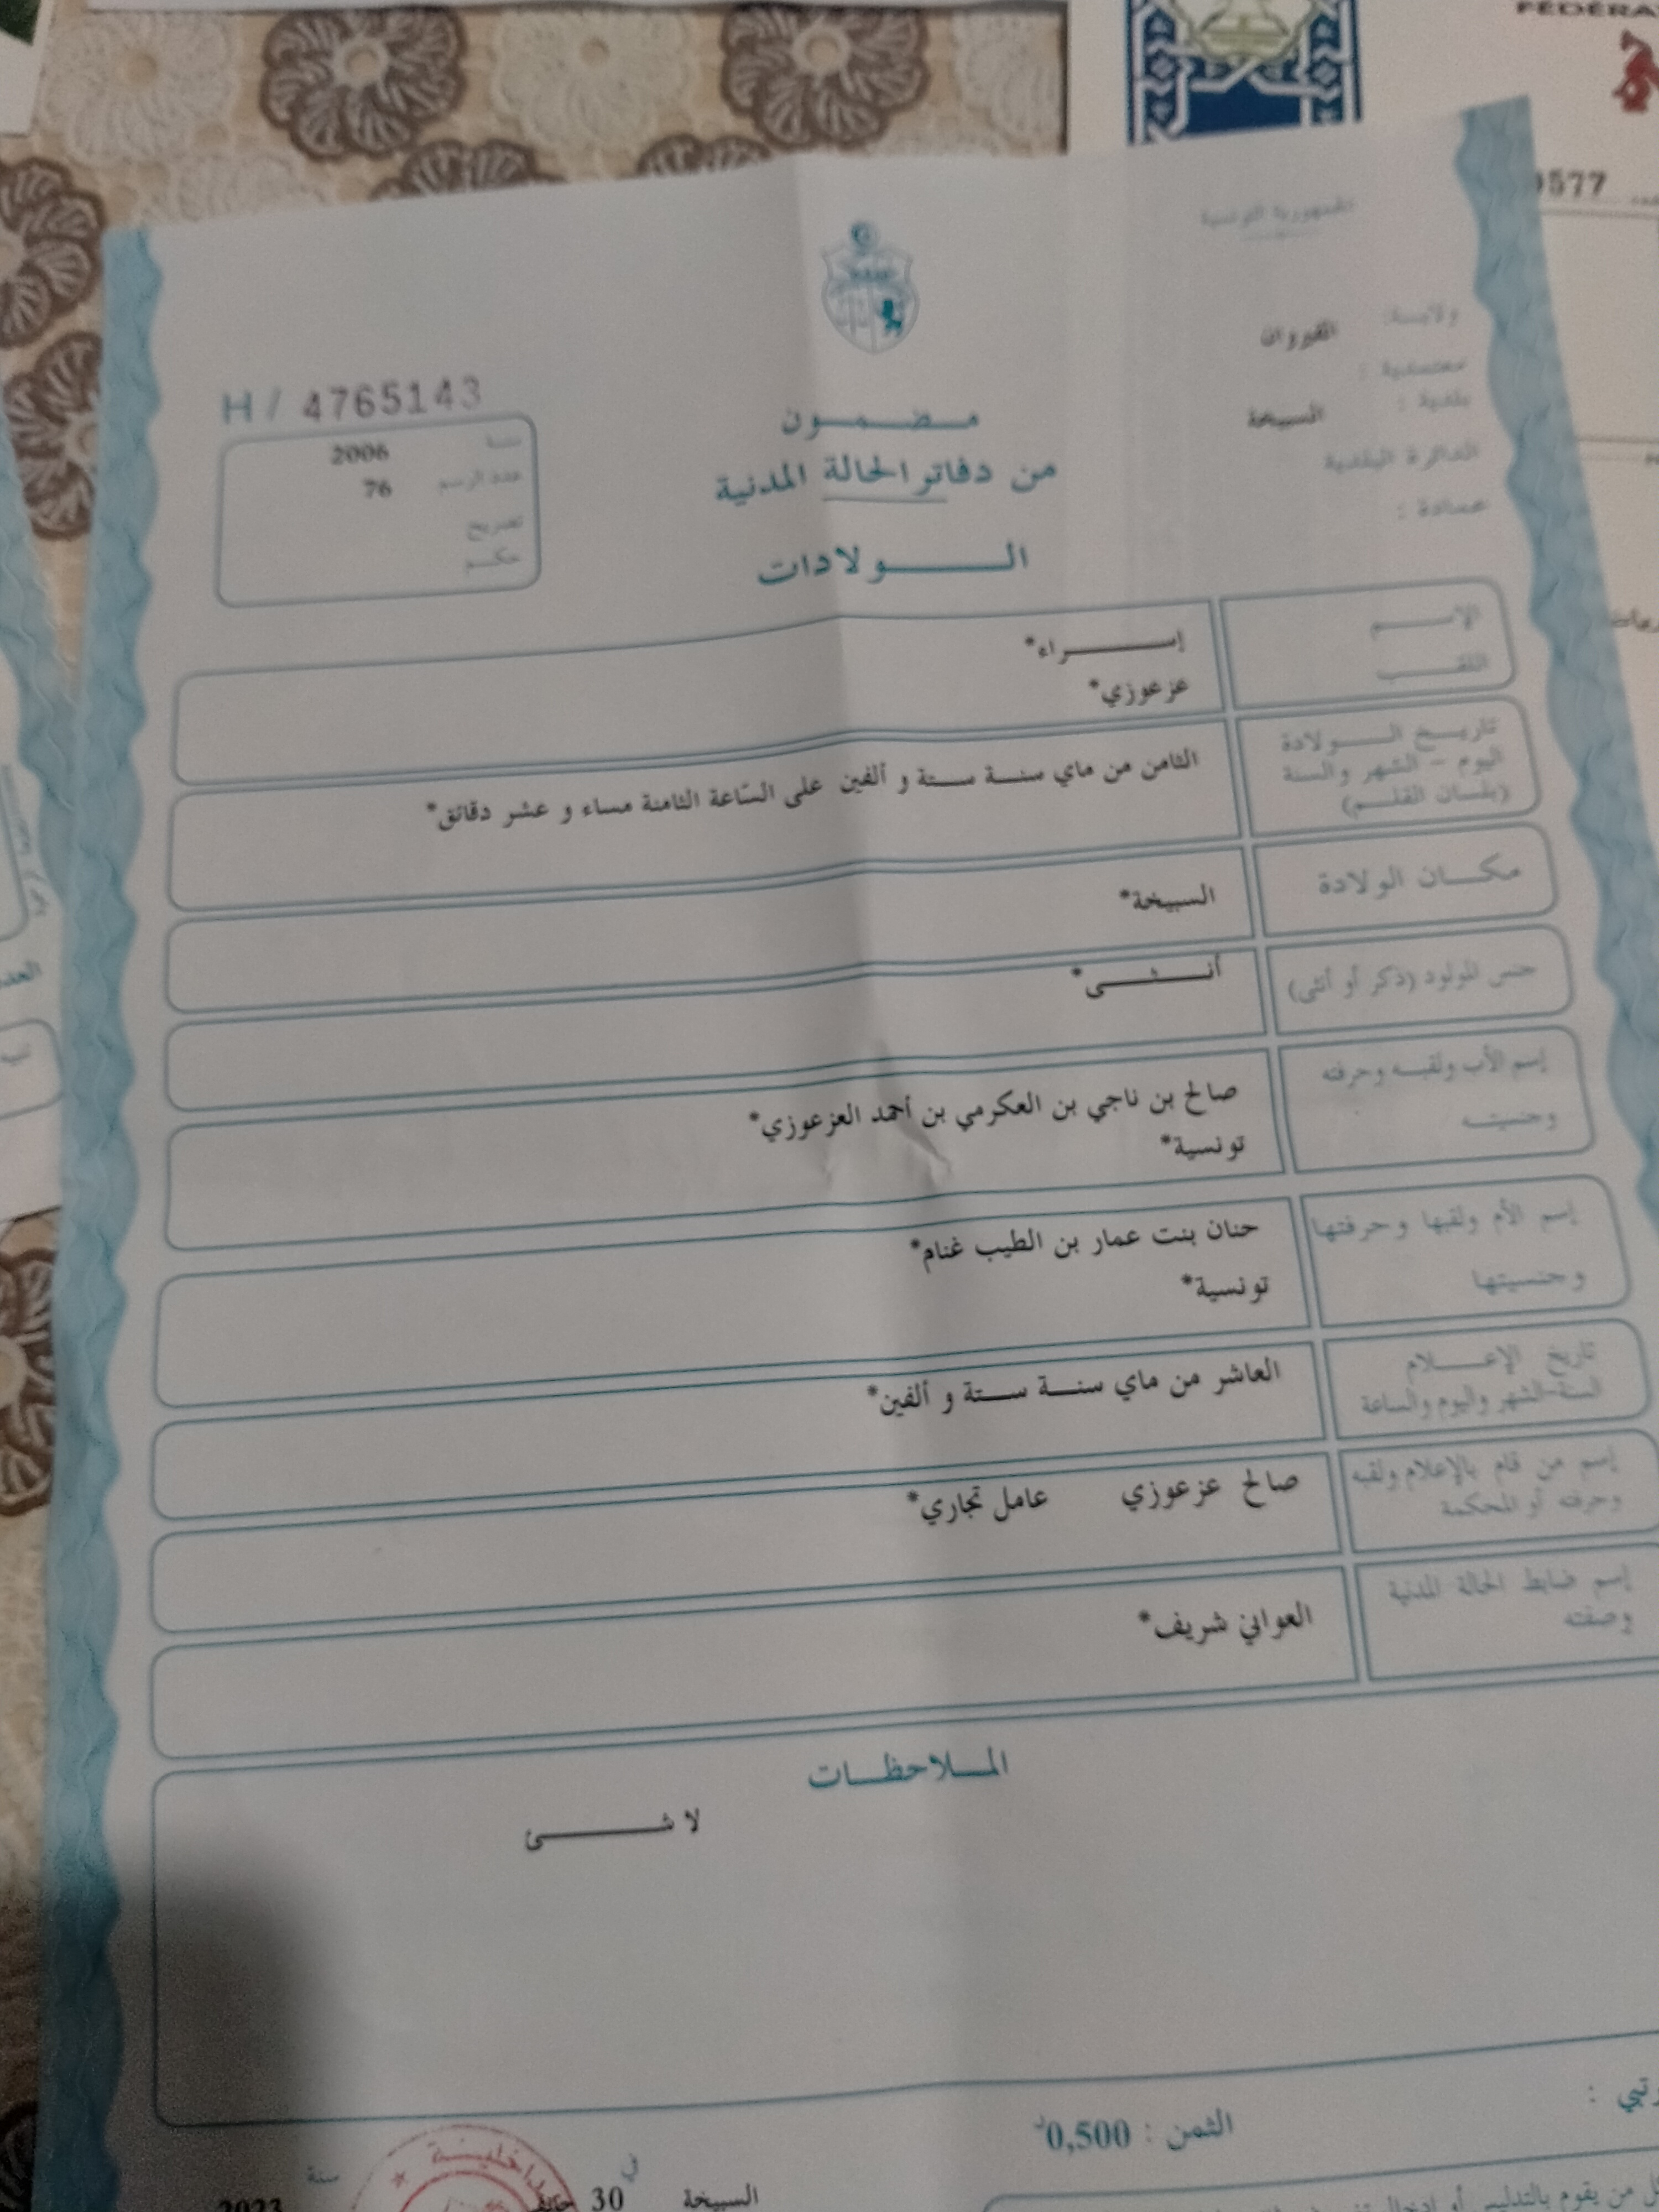 FÉDÉRA
9577
الجمهورية التونسية
ولاية: القيروان
معتمدية :
بلدية : السبيخة
الدائرة البلدية
عمادة :
H / 4765143
سنة 2006
عدد الرسم 76
تصريح
حكم
مضمون
من دفاتر الحالة المدنية
الولادات
الإسم إسراء*
اللقب عزعوزي*
تاريخ الولادة
اليوم - الشهر والسنة
(بلسان القلم)
الثامن من ماي سنة ستة و ألفين على السّاعة الثامنة مساء و عشر دقائق*
مكان الولادة السبيخة*
جنس المولود (ذكر أو أنثى) أنثى*
إسم الأب ولقبه وحرفته
وجنسيته
صالح بن ناجي بن العكرمي بن أحمد العزعوزي*
تونسية*
إسم الأم ولقبها وحرفتها
وجنسيتها
حنان بنت عمار بن الطيب غنام*
تونسية*
تاريخ الإعلام
السنة-الشهر واليوم والساعة
العاشر من ماي سنة ستة و ألفين*
إسم من قام بالإعلام ولقبه
وحرفته أو المحكمة
صالح عزعوزي عامل تجاري*
إسم ضابط الحالة المدنية
وصفته
العواني شريف*
الملاحظات
لا شئ
الثمن : 0,500د
السبيخة في 30 جانفي سنة 2023